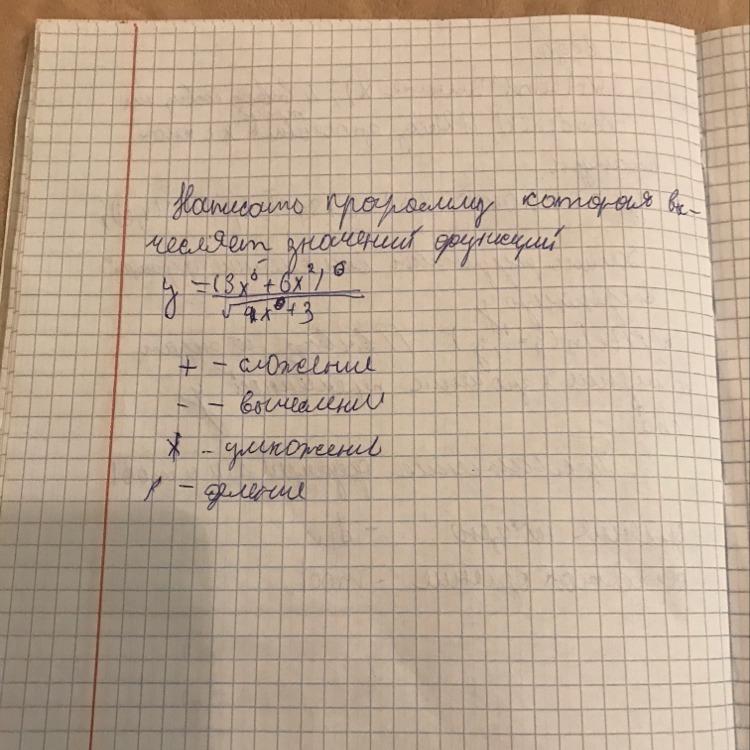 Написать программу которая вы-
числяет значений функций
y = (3x⁵ + 6x²)⁶ / √4x⁶ + 3
+ - сложение
- - вычелений
* - умножений
/ - деление